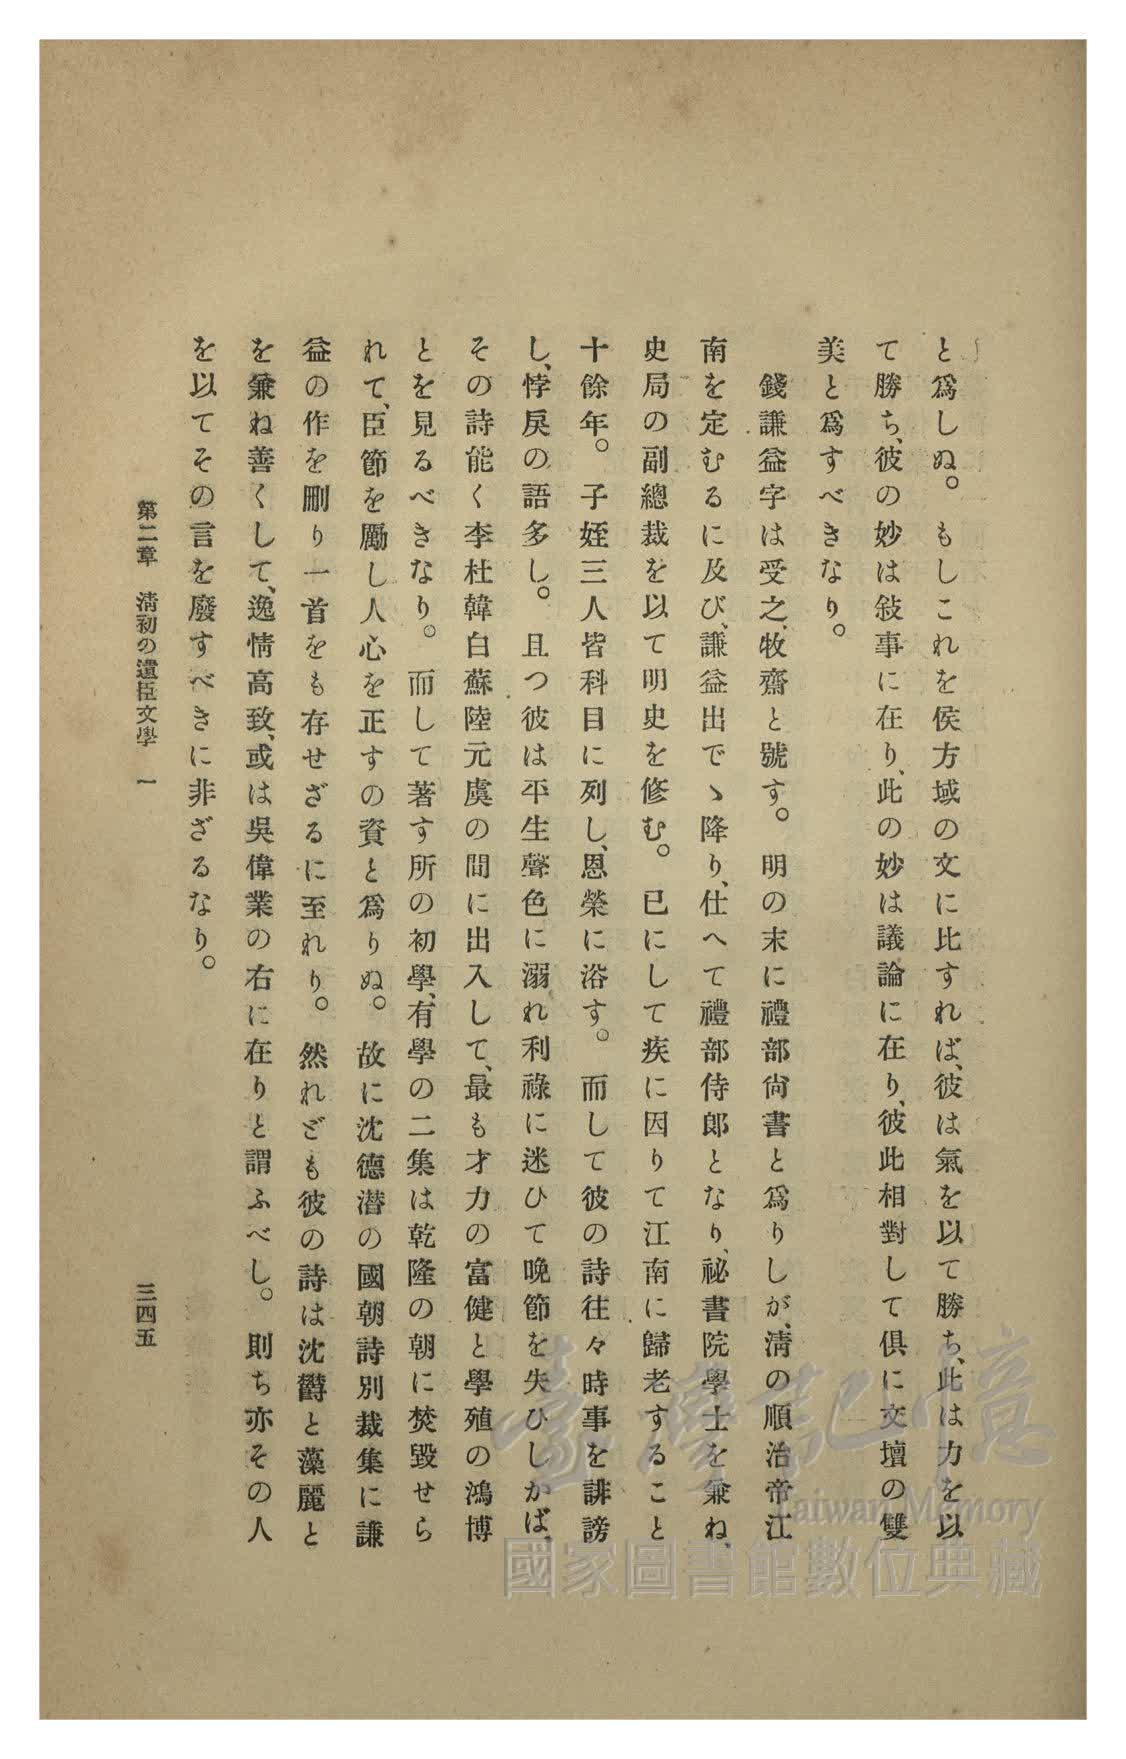 と爲しぬ。もしこれを侯方域の文に比すれば、彼は氣を以て勝ち、此は力を以
て勝ち、彼の妙は敍事に在り、此の妙は議論に在り、彼此相對して俱に文壇の雙
美と爲すべきなり。
錢謙益字は受之、牧齋と號す。明の末に禮部尙書と爲りしが、淸の順治帝江
南を定むるに及び、謙益出でゝ降り、仕へて禮部侍郞となり、祕書院學士を兼ね、
史局の副總裁を以て明史を修む。已にして疾に因りて江南に歸老すること
十餘年。子姪三人皆科目に列し、恩榮に浴す。而して彼の詩往々時事を誹謗
し、悖戾の語多し。且つ彼は平生聲色に溺れ利祿に迷ひて晚節を失ひしかば、
その詩能く李杜韓白蘇陸元虞の間に出入して、最も才力の富健と學殖の鴻博
とを見るべきなり。而して著す所の初學、有學の二集は乾隆の朝に焚毀せら
れて、臣節を勵し人心を正すの資と爲りぬ。故に沈德潛の國朝詩別裁集に謙
益の作を刪り一首をも存せざるに至れり。然れども彼の詩は沈鬱と藻麗と
を兼ね善くして、逸情高致、或は吳偉業の右に在りと謂ふべし。則ち亦その人
を以てその言を廢すべきに非ざるなり。
第二章 淸初の遺臣文學 一
三四五
臺灣記憶
Taiwan Memory
國家圖書館數位典藏